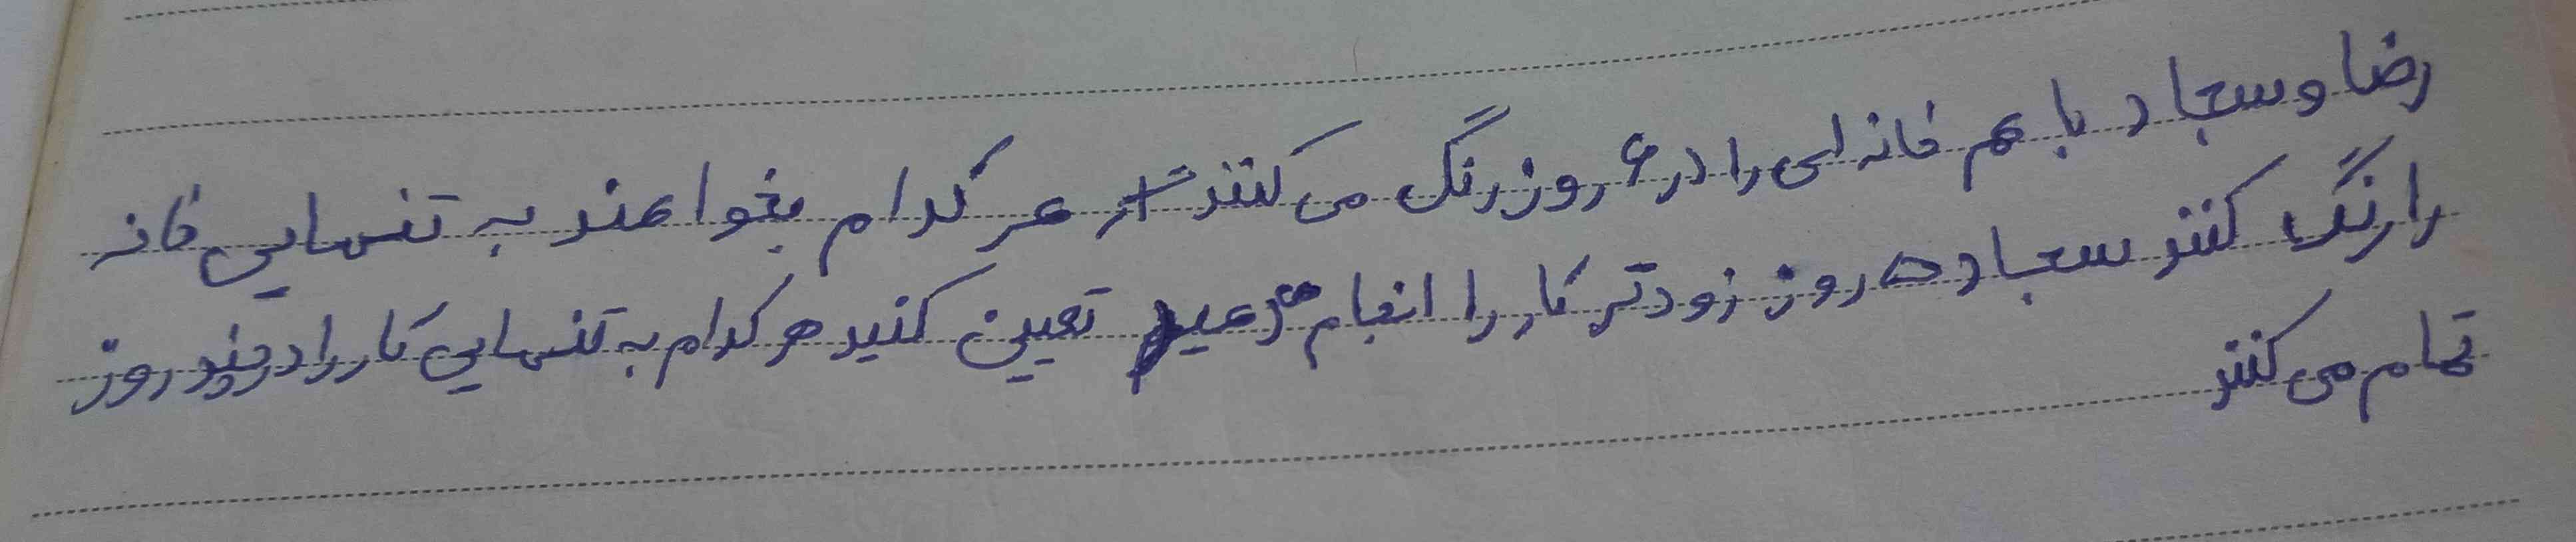 رضا و سجاد با هم خانه ای را در ۶ روز رنگ می کنند اگر هر کدام بخواهند به تنهایی خانه
را رنگ کنند سجاد ۵ روز زودتر کار را انجام می دهد تعیین کنید هر کدام به تنهایی کار را در چند روز
تمام می کنند